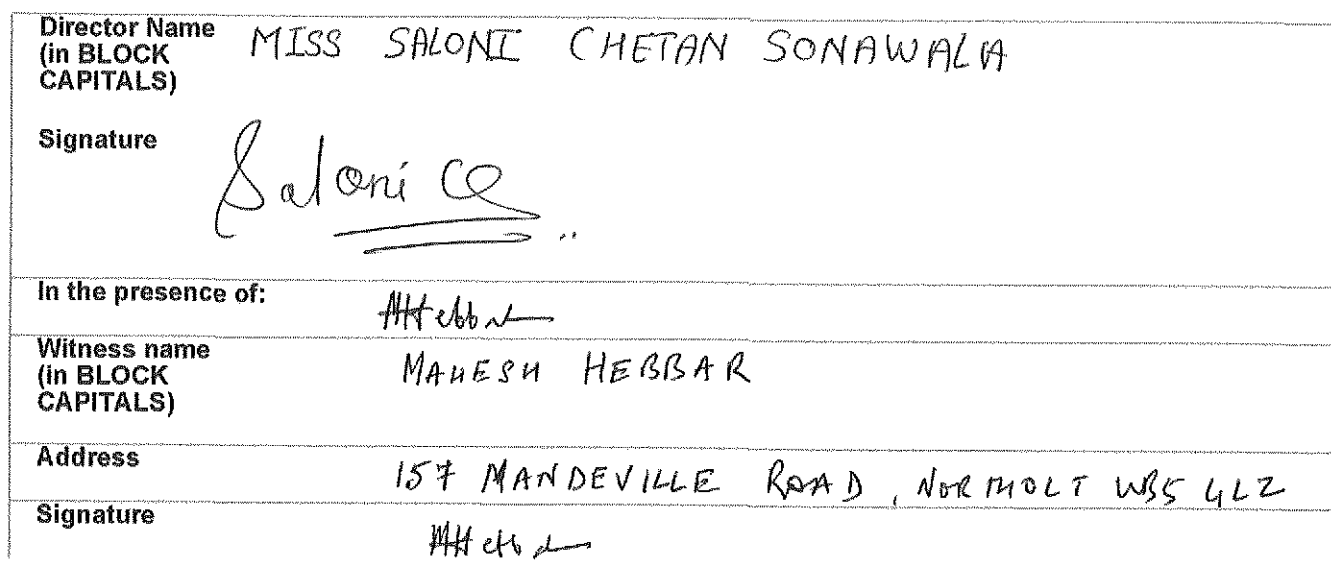 Director Name
(in BLOCK
CAPITALS)
MISS SALONI CHETAN SONAWALA
Signature
Saloni
In the presence of:
Witness name
(in BLOCK
CAPITALS)
MAHESH HEBBAR
Address
157 MANDEVILLE ROAD, NORTHOLT UB5 4LZ
Signature